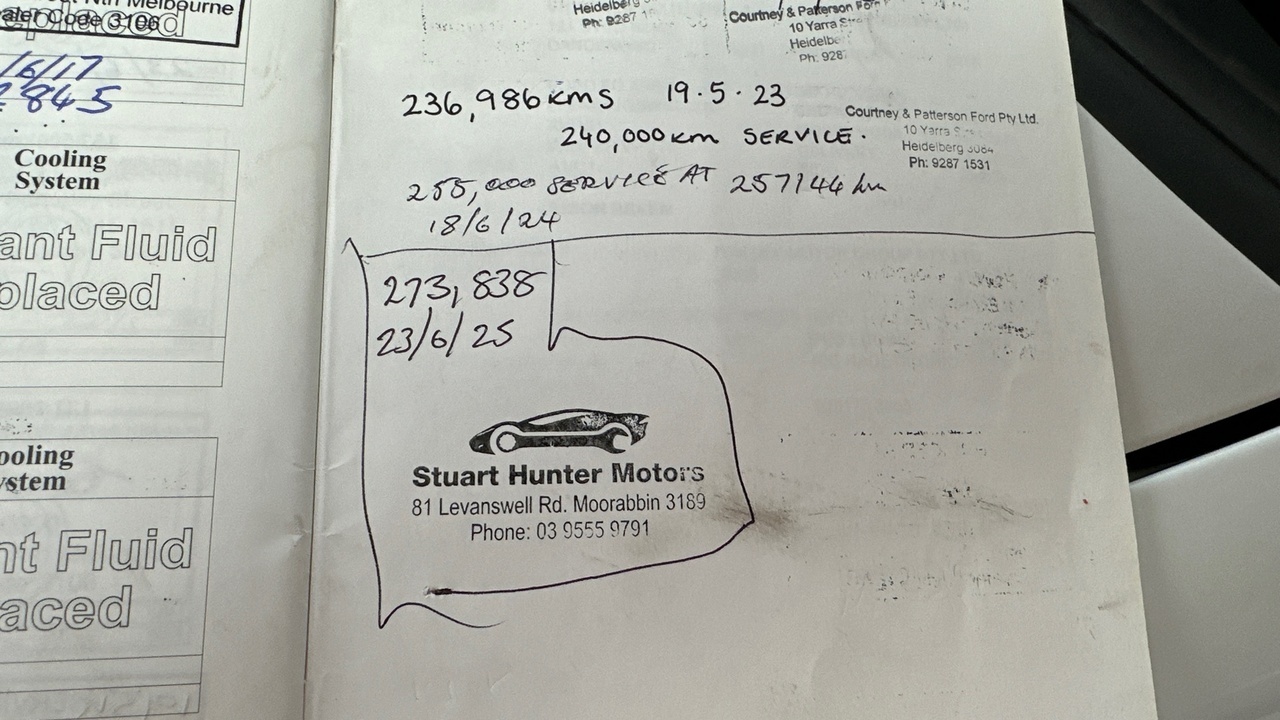 Nth Melbourne
Dealer Code 3106
replaced
/6/17
2845
Cooling
System
ant Fluid
placed
ooling
ystem
nt Fluid
aced
Heidelberg
Ph: 9287
Courtney & Patterson
10 Yarra
Heidelbe
Ph: 928
236,986kms 19.5.23
240,000km SERVICE.
Courtney & Patterson Ford Pty Ltd.
10 Yarra
Heidelberg 3084
Ph: 9287 1531
255,000 SERVICE AT 257144 km
18/6/24
273,838
23/6/25
Stuart Hunter Motors
81 Levanswell Rd. Moorabbin 3189
Phone: 03 9555 9791